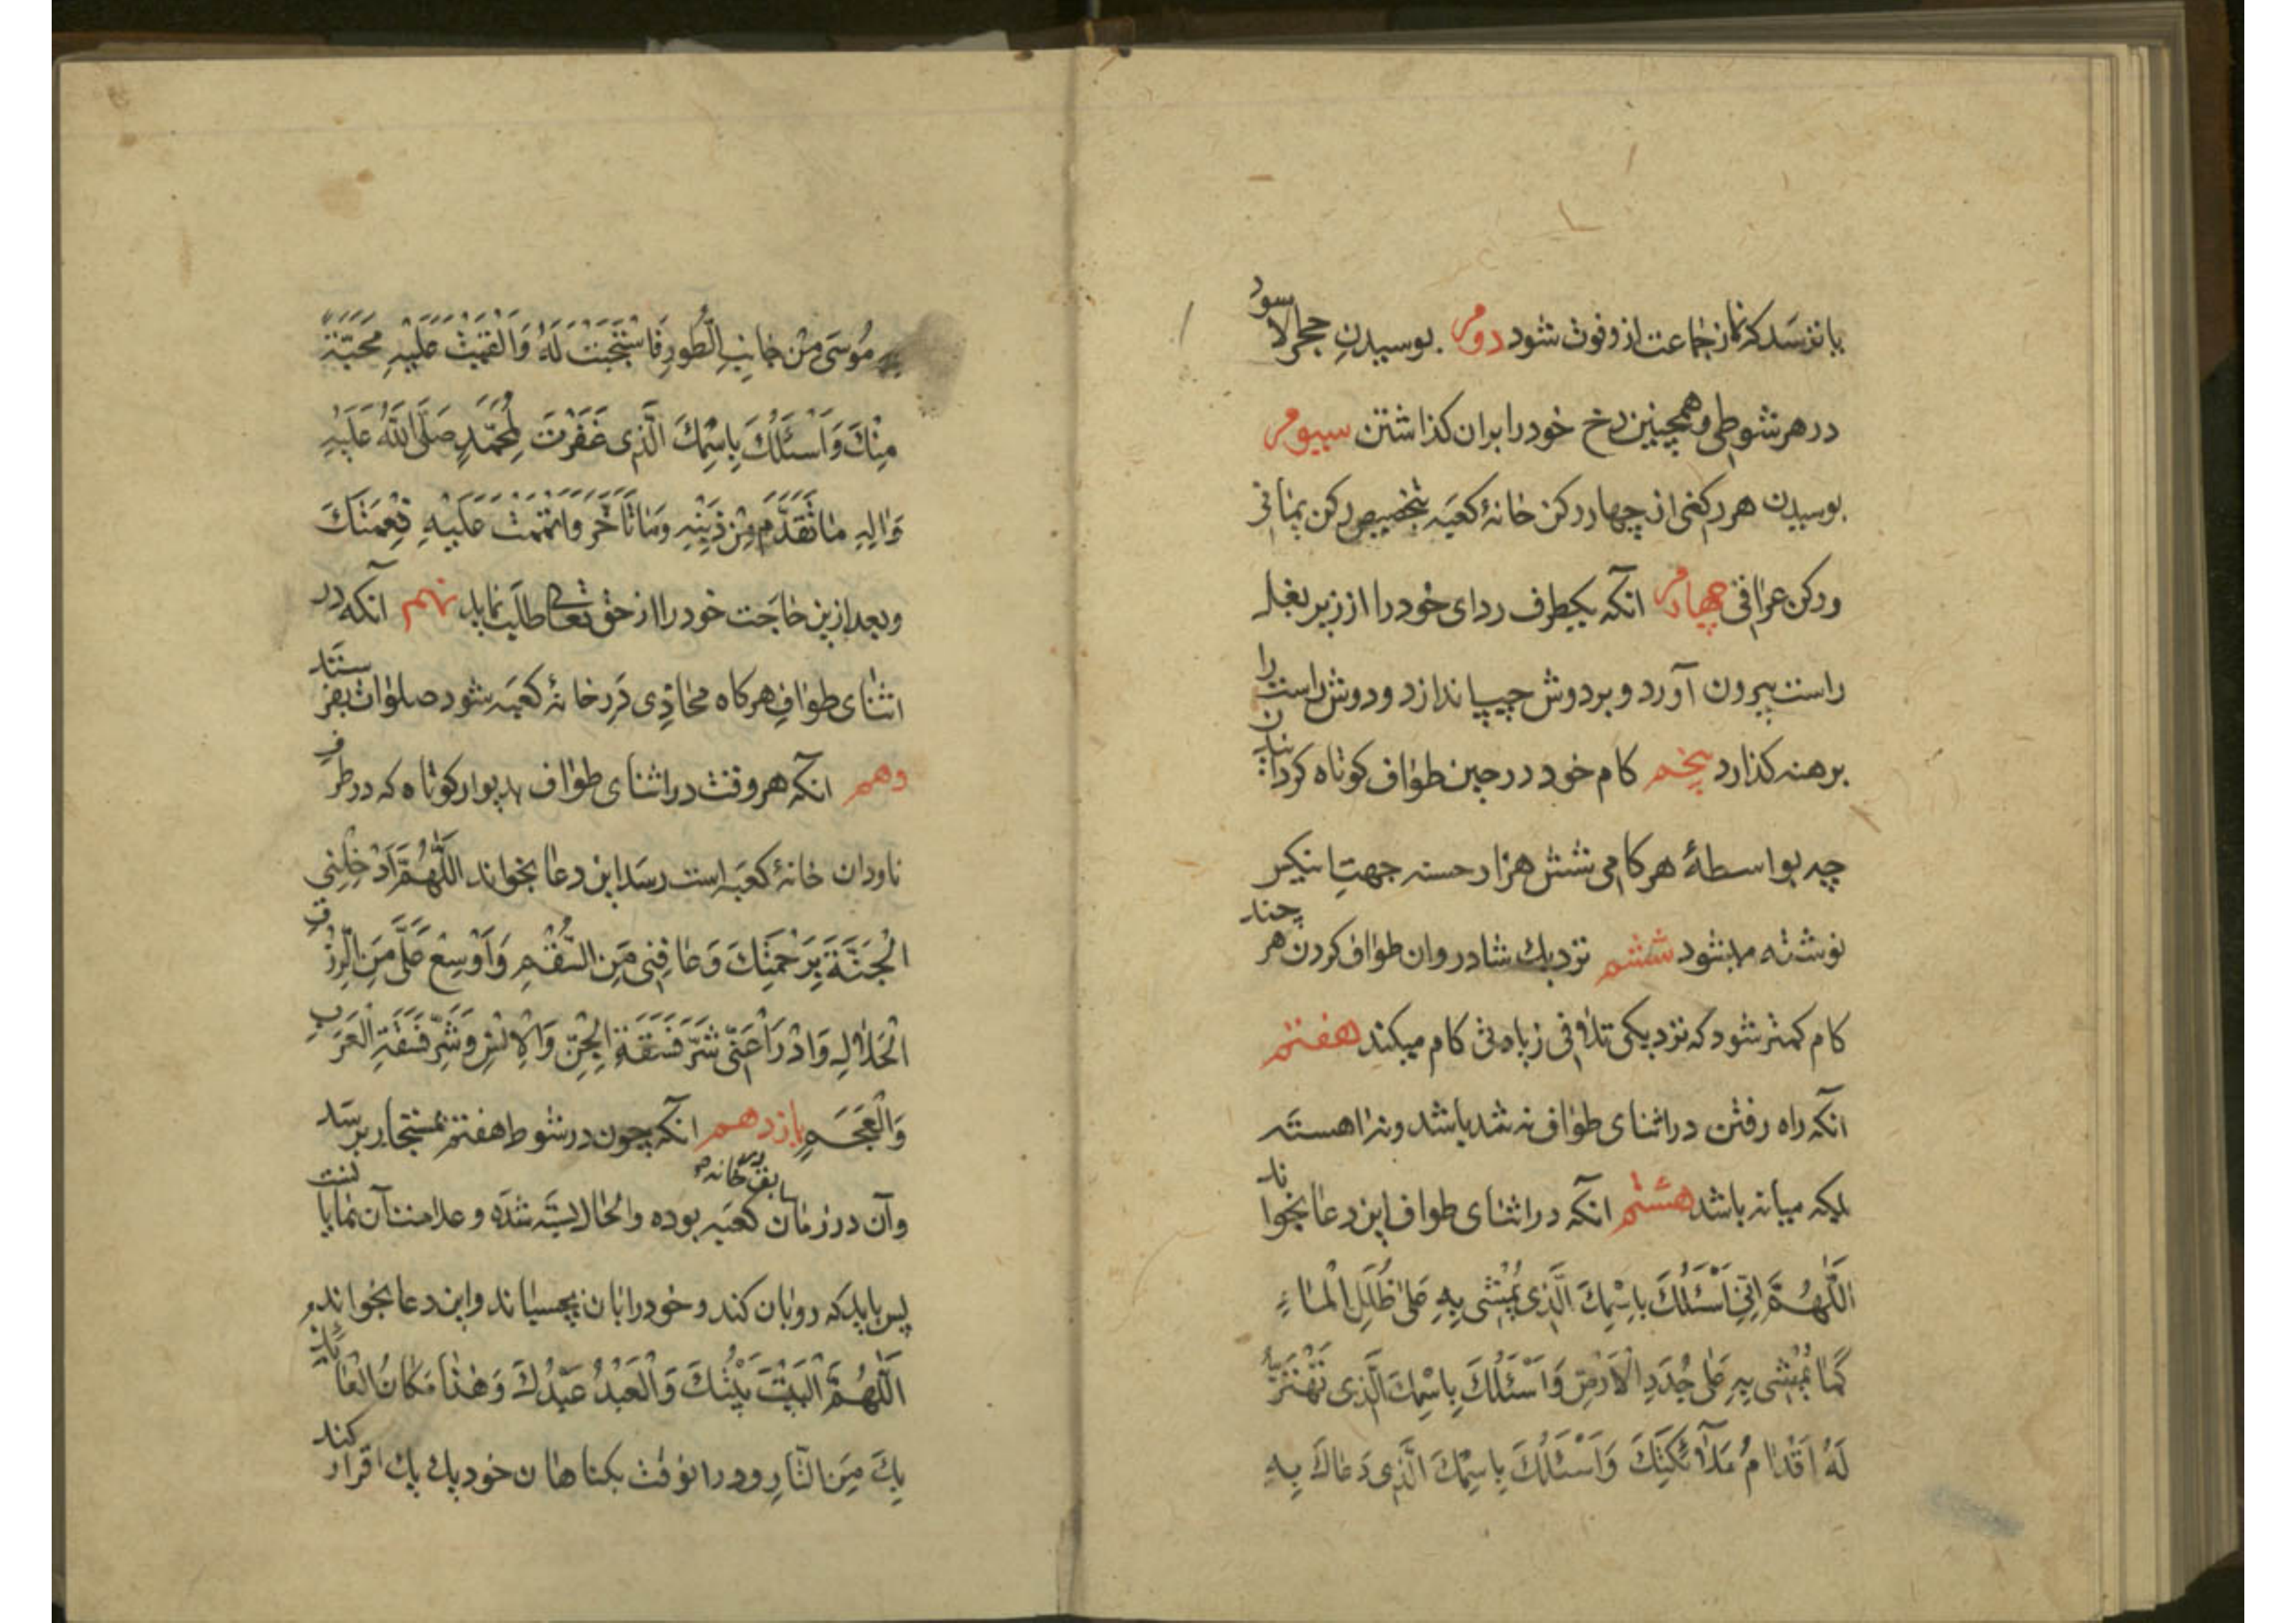 یا ترسد که نماز جماعت ازو فوت شود دوم بوسیدنِ حجر الاسود
در هر شوطی و همچنین رخ خود را بر ان کذاشتن سیوم
بوسیدن هر رکنی از چهار رکن خانهٔ کعبَه بتخصیص رکن یمانی
و رکن عراقی چهارم آنکه یکطرف ردای خود را از زیر بغل
راست بیرون آورد و بر دوش چپ اندازد و دوش راست را
برهنه کذارد پنجم کام خود در حین طواف کوتاه کرداندن
چه بواسطهٔ هر کامی شش هزار حسنه جهتِ اینکس
نوشته میشود ششم نزدیك شادروان طواف کردن هر چند
کام کمتر شود که نزدیکی تلافی زیادتی کام میکند هفتم
آنکه راه رفتن در اثنای طواف نه تند باشد و نه اهسته
بلکه میانه باشد هشتم انکه در اثنای طواف این دعا بخواند
اَللّٰهُمَّ اِنِّی اَسْئَلُكَ بِاسْمِكَ الَّذِی یُمْشٰی بِهِ عَلیٰ طُلَلِ الْمٰاءِ
کَمٰا یُمْشٰی بِهِ عَلٰی جُدَدِ الْاَرْضِ وَاَسْئَلُكَ بِاسْمِكَ الَّذِی تَهْتَزُّ
لَهُ اَقْدٰامُ مَلٰآئِکَتِكَ وَاَسْئَلُكَ بِاسْمِكَ الَّذِی دَعٰاكَ بِهِ
مُوسَی مِنْ جٰانِبِ الطُّورِ فَاسْتَجَبْتَ لَهُ وَاَلْقَیْتَ عَلَیْهِ مَحَبَّةً
مِنْكَ وَاَسْئَلُكَ بِاسْمِكَ الَّذِی غَفَرْتَ لِمُحَمَّدٍ صَلَّی اللّٰهُ عَلَیْهِ
وَاٰلِهِ مٰا تَقَدَّمَ مِنْ ذَنْبِهِ وَمٰا تَاَخَّرَ وَاَتْمَمْتَ عَلَیْهِ نِعْمَتَكَ
و بعد ازین حاجَت خود را از حق تعالی طلب نماید نهم آنکه در
اثنای طوافِ هر کاه محاذِی دَر خانهٔ کعبَه شود صلوات بفرستَد
دهم آنکه هر وقت در اثنای طواف بدیوار کوتاه که در طرفِ
ناودان خانهٔ کعبَه است رسَد این دعا بخواند اَللّٰهُمَّ اَدْخِلْنِی
الْجَنَّةَ بِرَحْمَتِكَ وَعٰافِنِی مِنَ السُّقْمِ وَاَوْسِعْ عَلَیَّ مِنَ الرِّزْقِ
الْحَلٰالِ وَادْرَاْ عَنِّی شَرَّ فَسَقَةِ الْجِنِّ وَالْاِنْسِ وَشَرَّ فَسَقَةِ الْعَرَبِ
وَالْعَجَمِ یازدهم آنکه چون در شوط هفتم بمستجار برسَد
وآن در زمان سابق در خانهٔ کعبَه بوده والحال بستَه شدَه و علامت آن نمایانست
پس باید که رو بان کند و خود را بان بچسباند و این دعا بخواند
اَللّٰهُمَّ الْبَیْتُ بَیْتُكَ وَالْعَبْدُ عَبْدُكَ وَهٰذٰا مَکٰانُ الْعٰائِذِ
بِكَ مِنَ النّٰارِ و در انوقت بکناهان خود یك یك اقرار کند